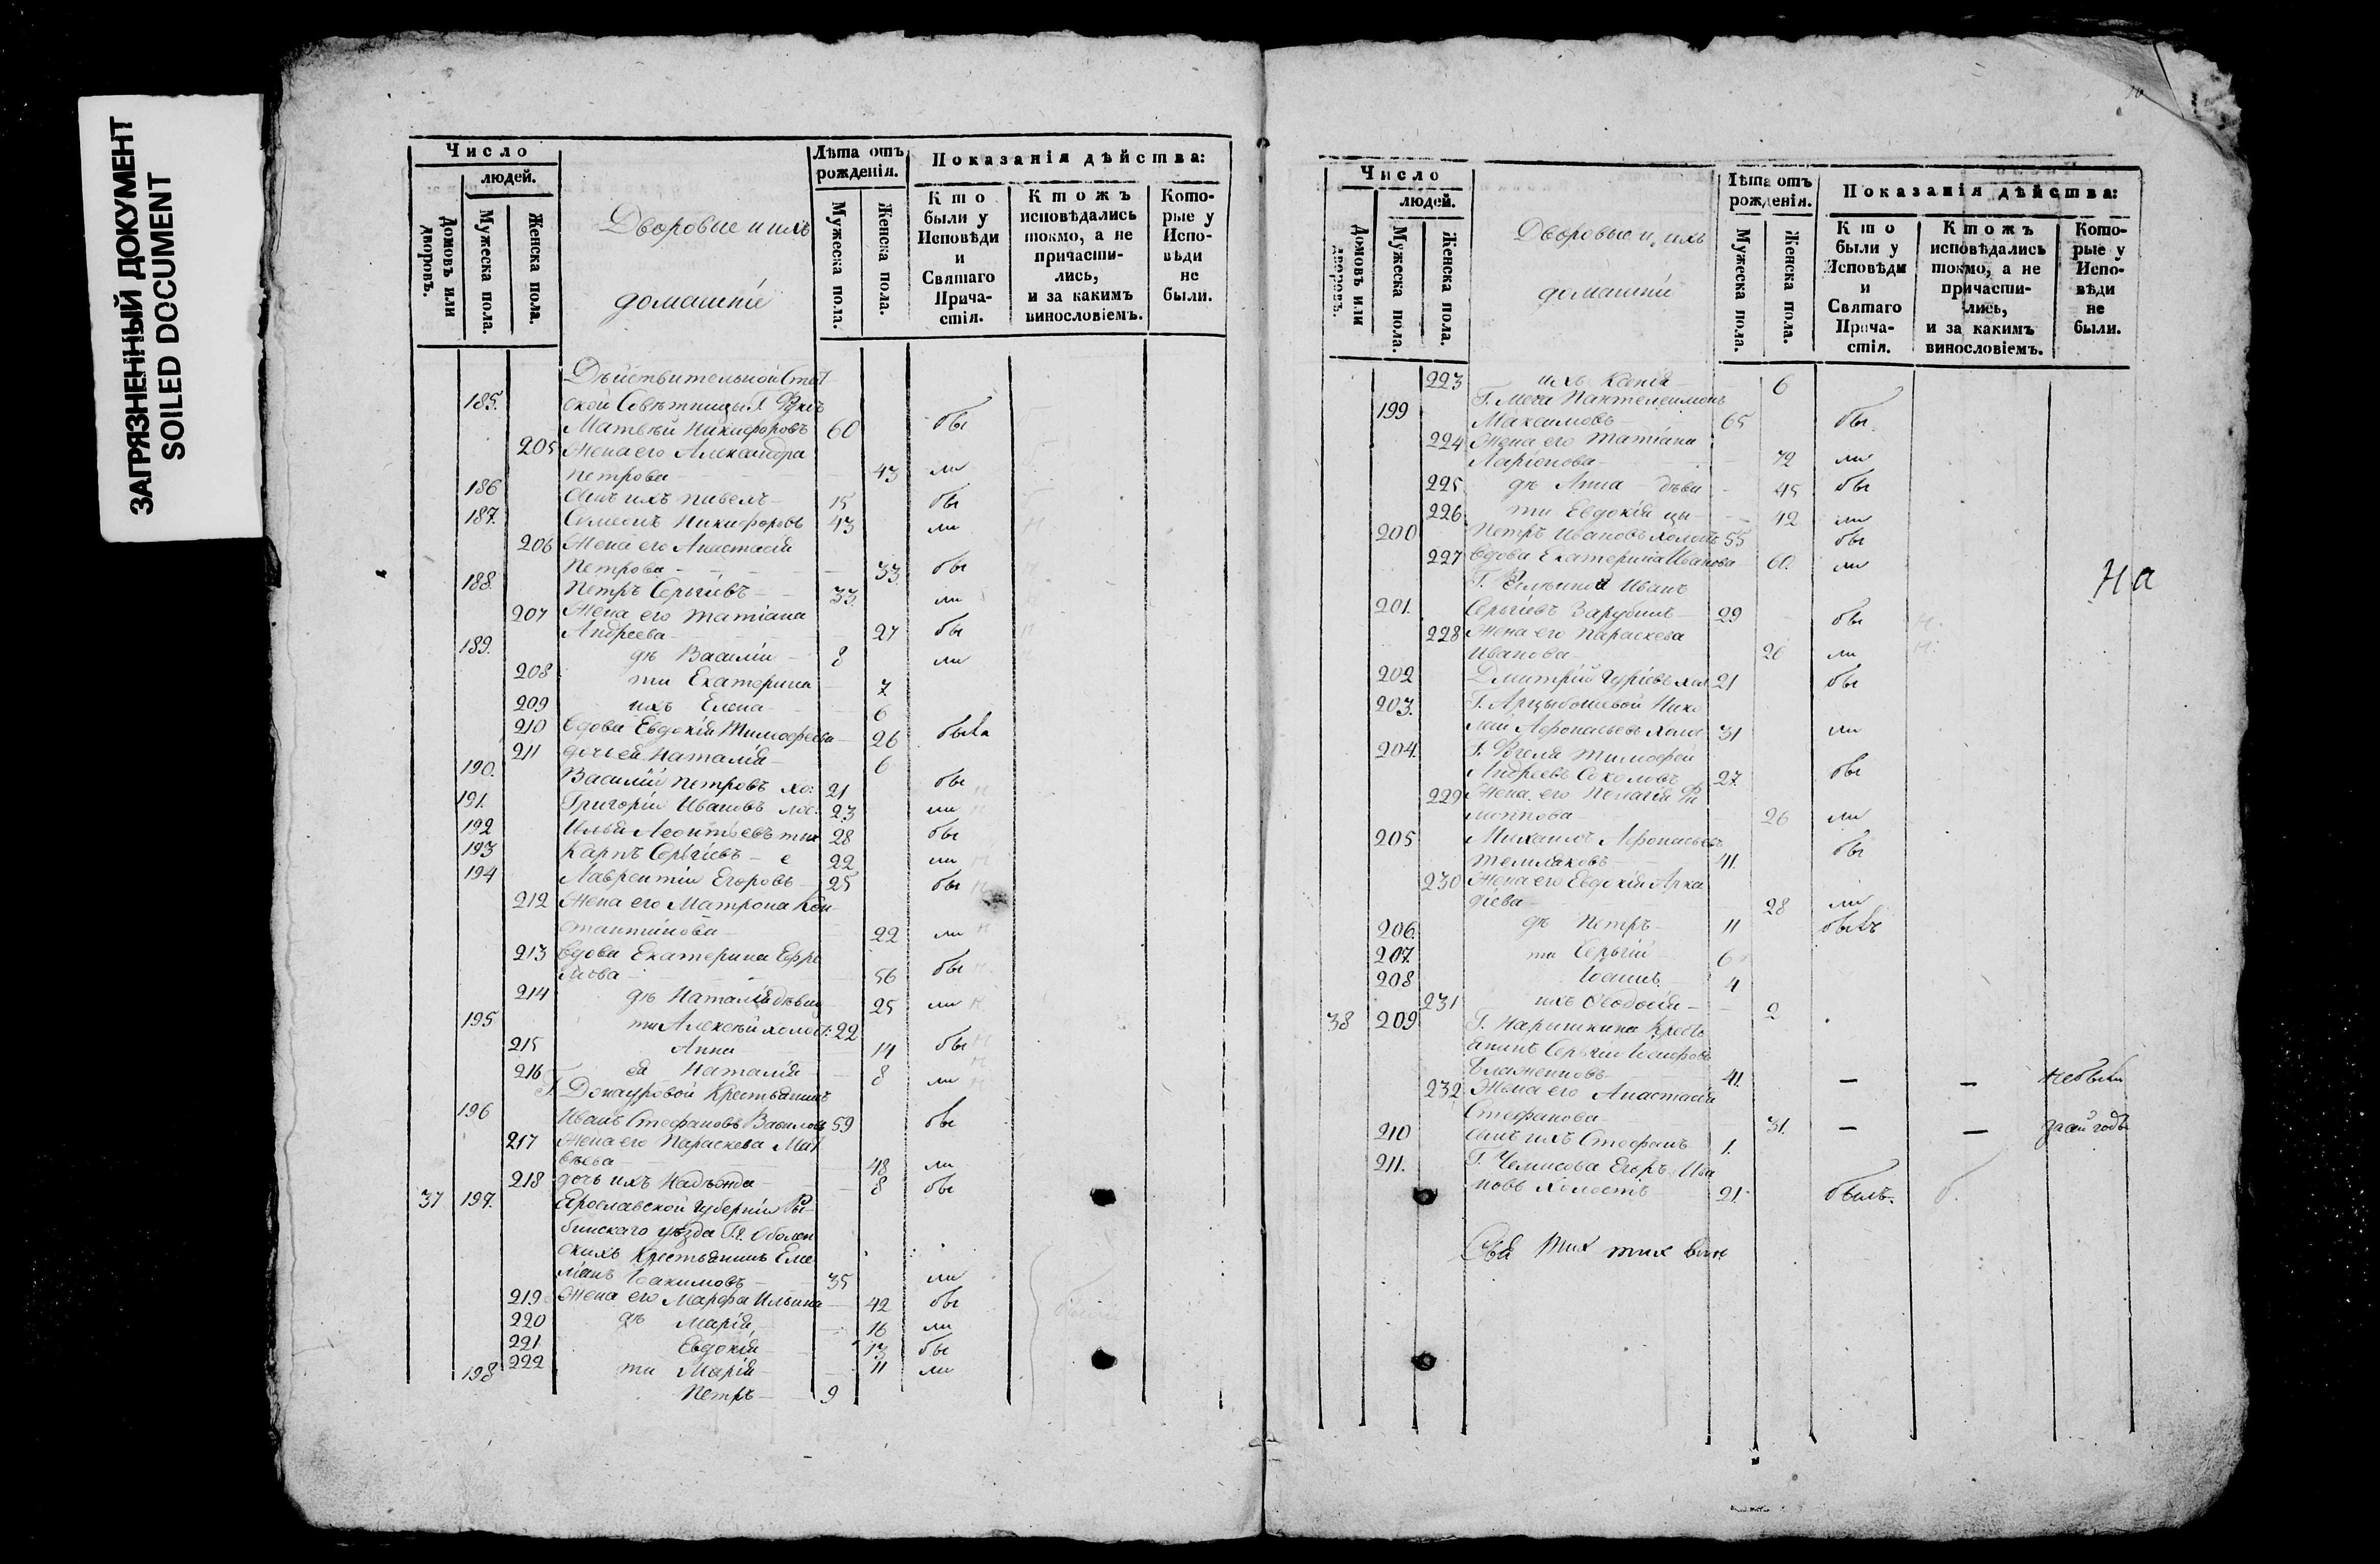 ЗАГРЯЗНЕННЫЙ ДОКУМЕНТ
SOILED DOCUMENT
Число
людей.
Домовъ или дворовъ.
Мужеска пола.
Женска пола.
Дворовые и ихъ
домашніе
Лѣта отъ рожденія.
Мужеска пола.
Женска пола.
Показанія дѣйства:
Кто были у Исповѣди и Святаго Прича-стія.
Ктожъ исповѣдались токмо, а не причасти-лись, и за какимъ винословіемъ.
Кото-рые у Испо-вѣди не были.
Дѣйствительной Стат
185. ской Совѣтницы Г.
Матвѣй Никифоровъ 60 бы
205 Жена его Александра
Петрова 43 ли
186 Сынъ ихъ Павелъ 15 бы
187. Никифоровъ 43 ли
206 Жена его Анастасія
Петрова 33 бы
188. Петръ Сергіевъ 33 ли
207 Жена его Татіана
Андреева 27 бы
189. дѣ Василій 8 ли
208 ти Екатерина 7
209 ихъ Елена 6
210 Вдова Евдокія Тимофеева 26 была
211 дочь ея Наталія 6
190. Василій Петровъ хо: 21 бы
191. Григорій Ивановъ лос: 23 ли
192 Илья Леонтьевъ ты 28 бы
193 Карпъ Сергіевъ е 22 ли
194 Лаврентій Егоровъ 25 бы
212 Жена его Матрона Кон
стантинова 22 ли
213 Вдова Екатерина Ефре
мова 56 бы
214 дѣ Наталія дѣвиц 25 ли
195 ти Алексѣй холост: 22
215 Анна 14 бы
216 ея Наталія 8 ли
Г. Докауровой Крестьянинъ
196 Иванъ Стефановъ 59 бы
217 Жена его Параскева Мат
вѣева 48 ли
218 дочь ихъ Надѣжда 8 бы
37 197. Ярославской Губерніи Ры
бинскаго уѣзда Г.г. Оболен
скихъ Крестьянинъ Еме
ліанъ Іоакимовъ 35 ли
219 Жена его Марфа Ильина 42 бы
220 дѣ Марія 16 ли
221 Евдокія 13 бы
222 ти Марія 11 ли
198 Петръ 9
Число
людей.
Домовъ или дворовъ.
Мужеска пола.
Женска пола.
Дворовые и ихъ
домашніе
Лѣта отъ рожденія.
Мужеска пола.
Женска пола.
Показанія дѣйства:
Кто были у Исповѣди и Святаго Прича-стія.
Ктожъ исповѣдались токмо, а не причасти-лись, и за какимъ винословіемъ.
Кото-рые у Испо-вѣди не были.
223 ихъ Ксенія 6
199 Г. Пантелеимонъ
Максимовъ 65 бы
224 Жена его Татіана
Ларіонова 72 ли
225 дѣ Анна дѣви 45 бы
226 ти Евдокія цы 42 ли
200 Петръ Ивановъ холост 55 бы
227 Вдова Екатерина Иванова 60. ли
Г. Иванъ
201. Сергіевъ Зарубинъ 29 бы
228 Жена его Параскева
Иванова 26 ли
202 Дмитрій Гуріевъ хол 21 бы
203. Г. Арцыбашевой Нико
лай Афонасьевъ холос 31 ли
204. Г. Тимофей
Андреевъ Соколовъ 27. бы
229 Жена его Пелагія Фи
липпова 26 ли
205 Михаилъ Афонасьевъ
41. бы
230 Жена его Евдокія Арка
діева 28 ли
206. дѣ Петръ 11 былъ
207. ти Сергій 6
208 Іоаннъ 4
231 ихъ Ѳеодосія 2
38 209 Г. Нарышкина Кресть
янинъ Сергій
Блаженновъ 41. — — не были
232 Жена его Анастасія
Стефанова 31. — — за сей годъ
210 Сынъ ихъ Стефанъ 1.
211. Г. Чемисова Егоръ Ива
новъ холостъ 21. былъ.
На